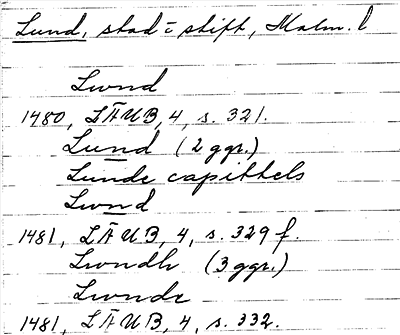 Lund, stad i stift, Malm. l
Lwnd
1480, LÄUB, 4, s. 321.
Lund (2 ggr.)
Lunde capittels
Lwnd
1481, LÄUB, 4, s. 329 f.
Lwndh (3 ggr.)
Lwnde
1481, LÄUB, 4, s. 332.